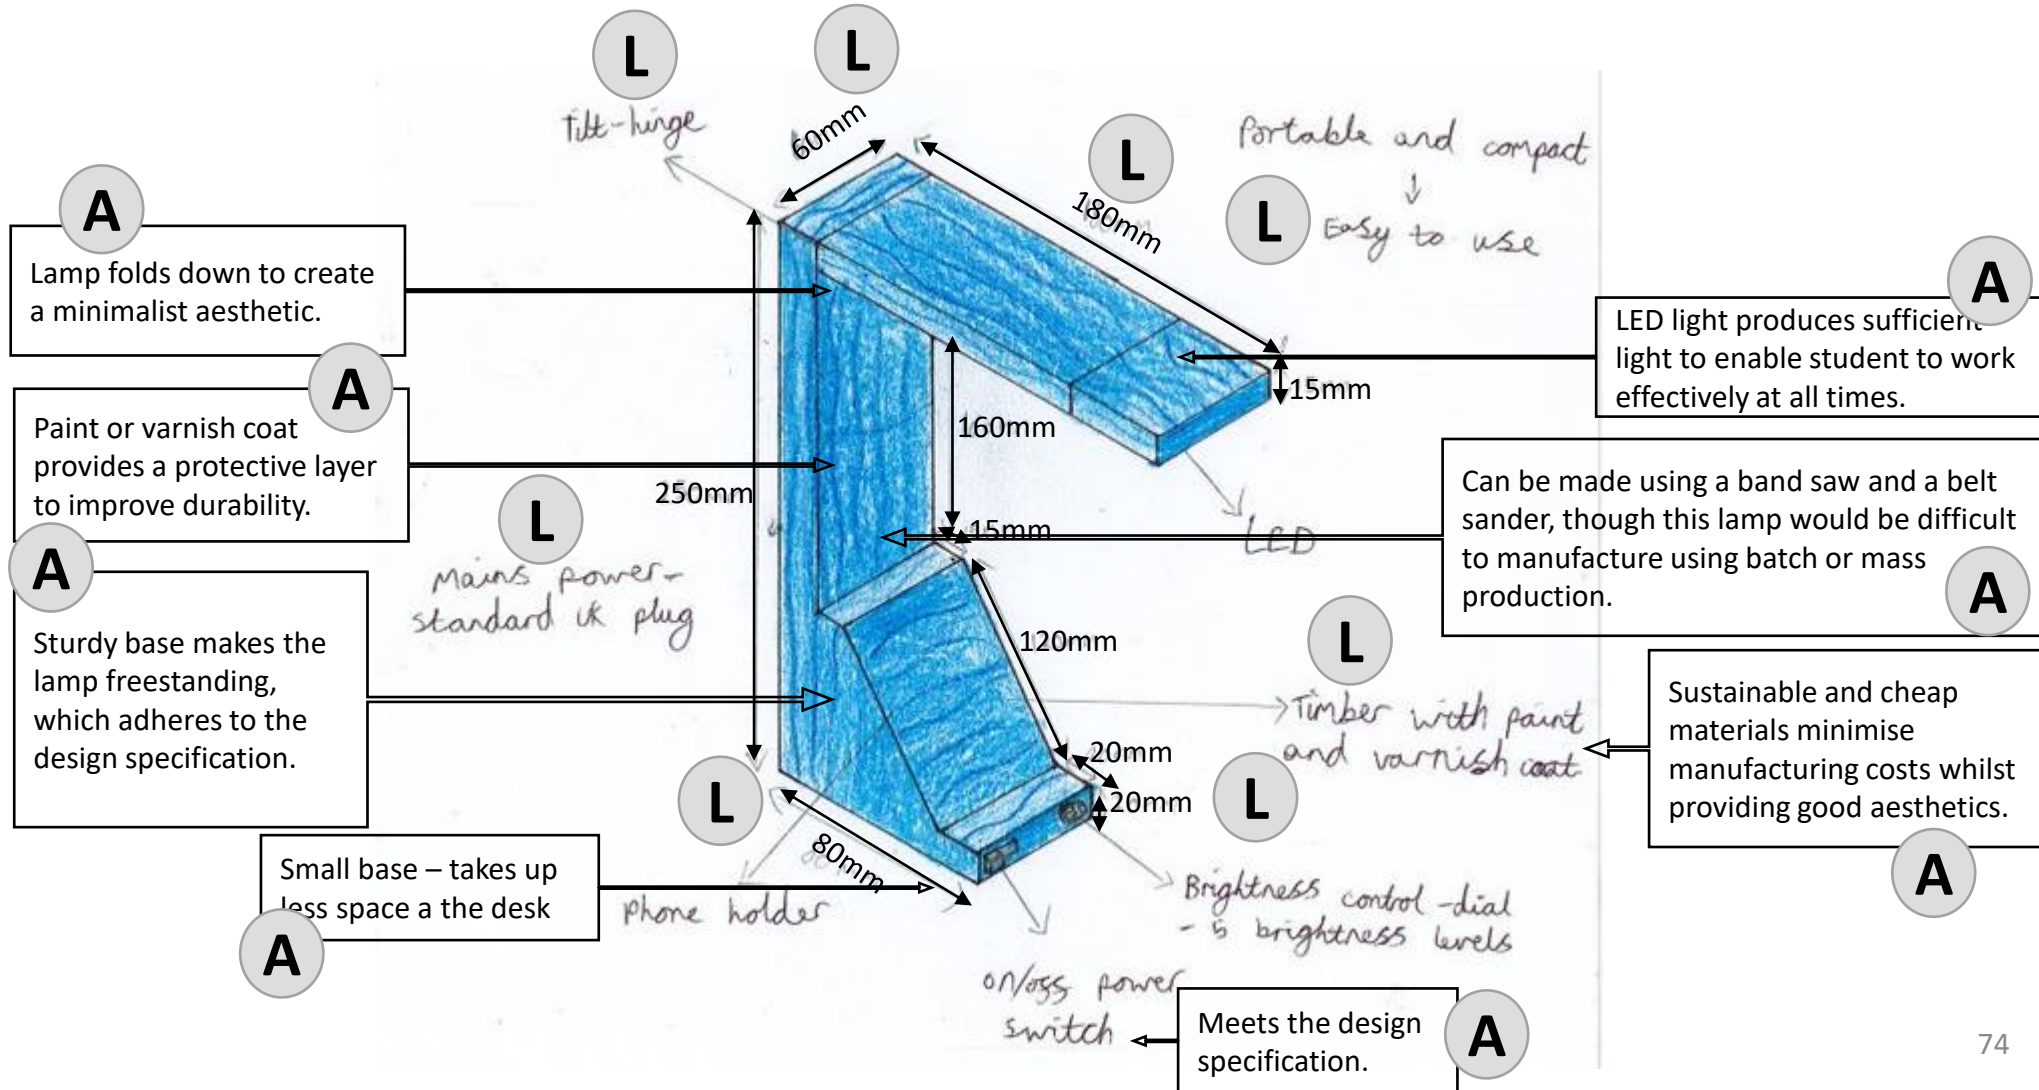 L
L
Tilt-hinge
60mm
L
180mm
Portable and compact
L
Easy to use
A
Lamp folds down to create
a minimalist aesthetic.
A
LED light produces sufficient
light to enable student to work
effectively at all times.
15mm
A
Paint or varnish coat
provides a protective layer
to improve durability.
160mm
250mm
L
Mains power-
standard UK plug
15mm
LED
Can be made using a band saw and a belt
sander, though this lamp would be difficult
to manufacture using batch or mass
production.
A
A
Sturdy base makes the
lamp freestanding,
which adheres to the
design specification.
120mm
L
Timber with paint
and varnish coat
Sustainable and cheap
materials minimise
manufacturing costs whilst
providing good aesthetics.
A
20mm
20mm
L
L
80mm
Small base – takes up
less space a the desk
A
Phone holder
Brightness control -dial
- 5 brightness levels
on/off power
switch
Meets the design
specification.
A
74